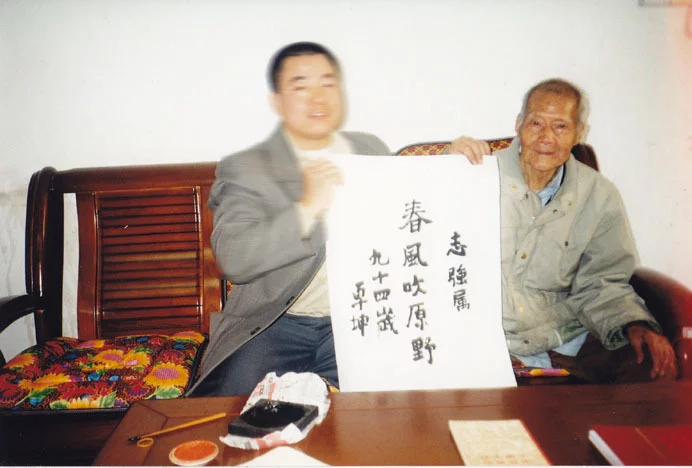 志強属
春風吹原野
九十四歲
卓坤